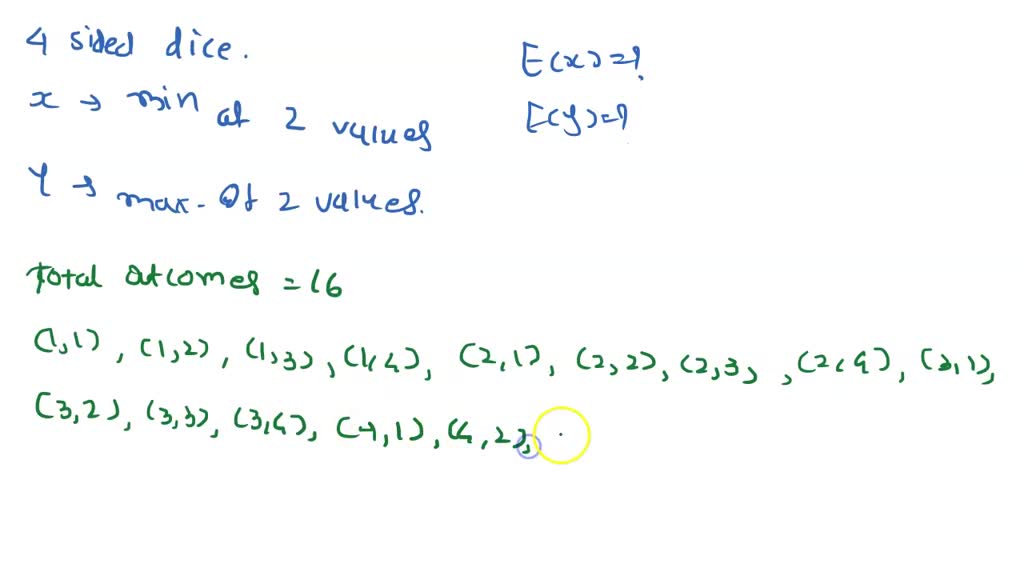 4 sided dice.
E(x)=?
x → min of 2 values
E(y)=?
Y → max. of 2 values.
Total outcomes = 16
(1,1), (1,2), (1,3), (1,4), (2,1), (2,2), (2,3, , (2,4), (3,1),
(3,2), (3,3), (3,4), (4,1), (4,2),